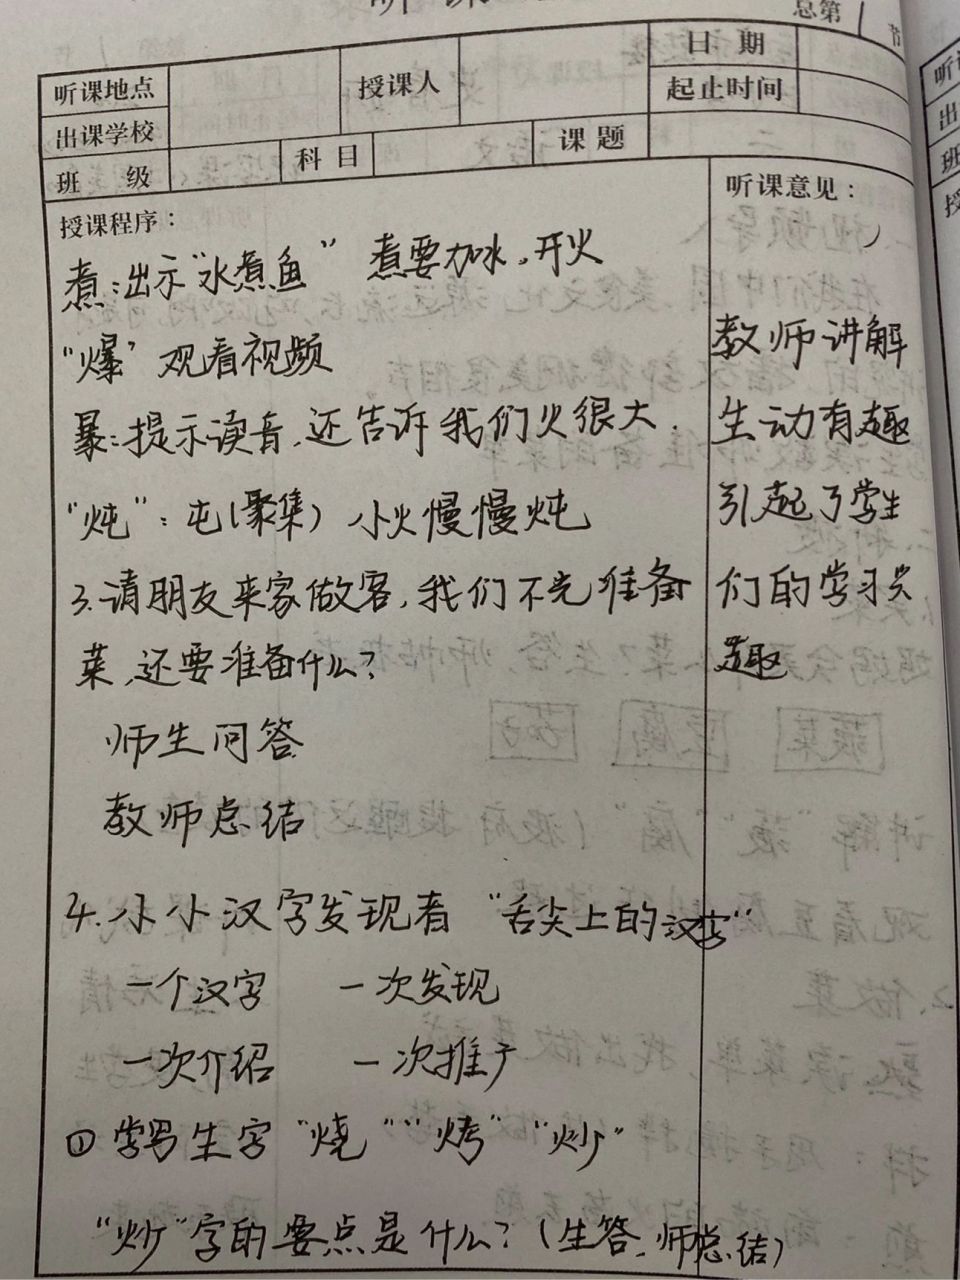 听课
总第 节
听课地点 授课人 日 期
起止时间
出课学校
班 级 科目 课题
授课程序：
听课意见：
煮：出示“水煮鱼” 煮要加水，开火
“爆” 观看视频
暴：提示读音，还告诉我们火很大．
“炖”：屯（聚集） 小火慢慢炖
3.请朋友来家做客，我们不光准备
菜，还要准备什么？
师生问答
教师总结
4.小小汉字发现着 “舌尖上的汉字”
一个汉字 一次发现
一次介绍 一次推于
① 学写生字“烧”“烤”“炒”
“炒”字的要点是什么？（生答，师总结）
教师讲解
生动有趣
引起了学生
们的学习兴
趣
听课
出
班
授